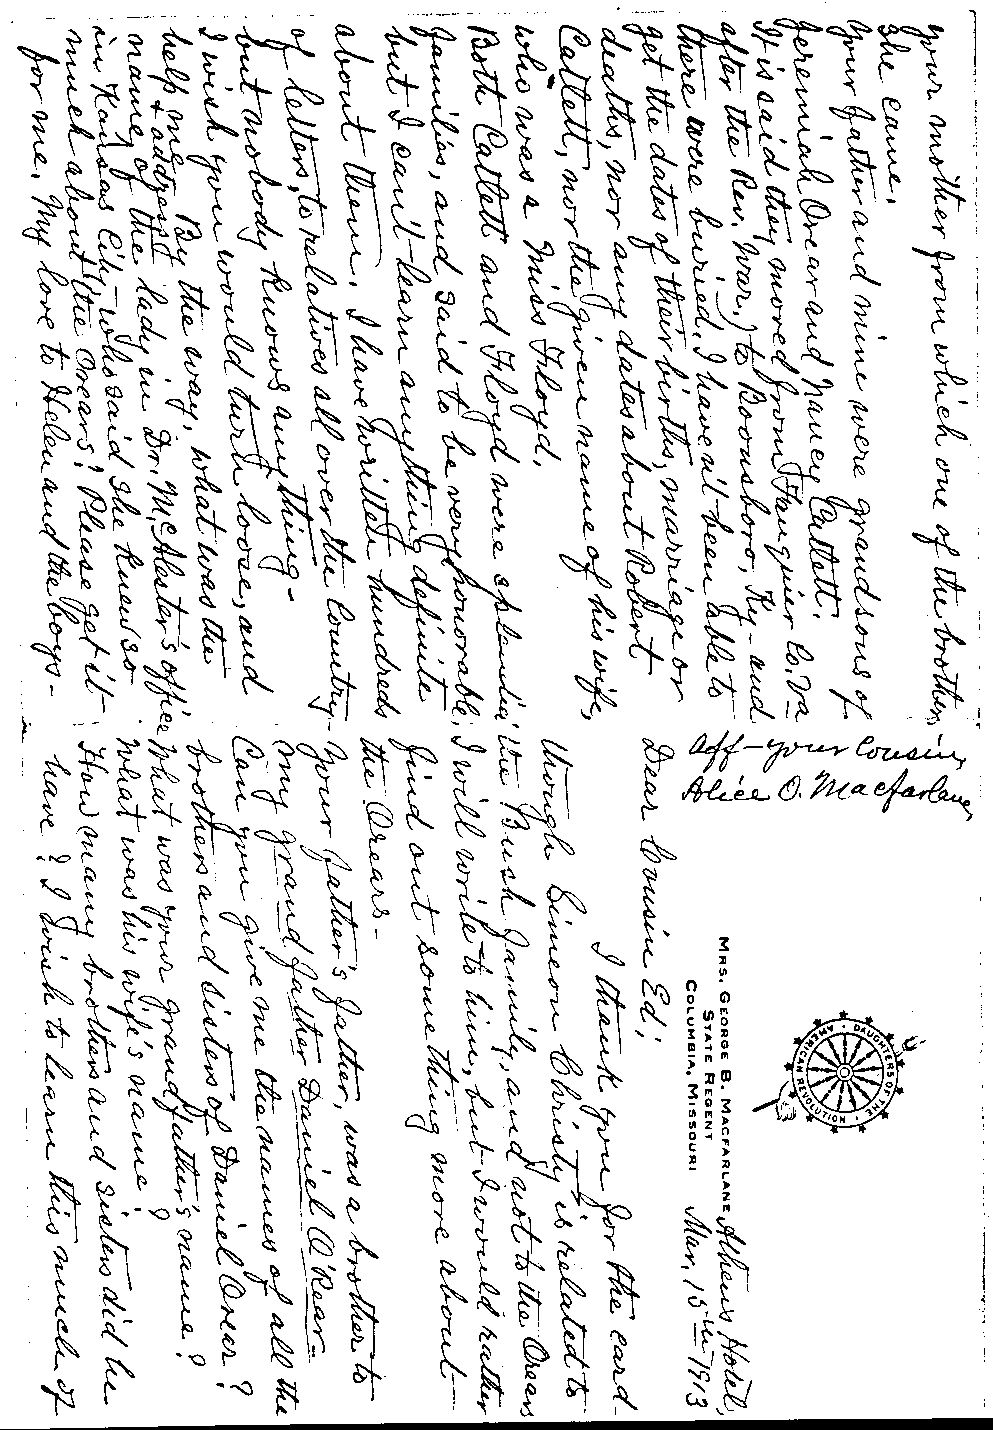 DAUGHTERS OF THE AMERICAN REVOLUTION
MRS. GEORGE B. MACFARLANE, Athens Hotel,
STATE REGENT
COLUMBIA, MISSOURI Mar, 15th 1913
Dear Cousin Ed;
I thank you for the card
though Simeon Christy is related to
the Bush family, and not to the Orears
I will write to him, but I would rather
find out something more about
the Orears-
Your father's father, was a brother to
my grand father Daniel O'Rear-
Can you give me the names of all the
brothers and sisters of Daniel Orear?
What was your grand father's name?
What was his wife's name?
How many brothers and sisters did he
have? I wish to learn this much of
your mother from which one of the brothers
she came.
Your father and mine were grandsons of
Jeremiah Orear and Nancy Catlett.
It is said they moved from Fauquier Co. Va
after the Rev. War.) to Boonsboro, Ky- and
there were buried. I haven't been able to
get the dates of their births, marriage or
deaths, nor any dates about Robert
Catlett, nor the given name of his wife,
who was a Miss Floyd.
Both Catlett and Floyd were splendid
families, and said to be very honorable,
but I can't learn anything definite
about them. I have written hundreds
of letters, to relatives all over the Country-
but nobody knows anything-
I wish you would turn loose, and
help me. By the way, what was the
name & address of the lady in Dr. McAlester's office
in Kansas City- who said she knew so
much about the Orears? Please get it
for me. My love to Helen and the boys-
Aff- your Cousin,
Alice O. Macfarlane,